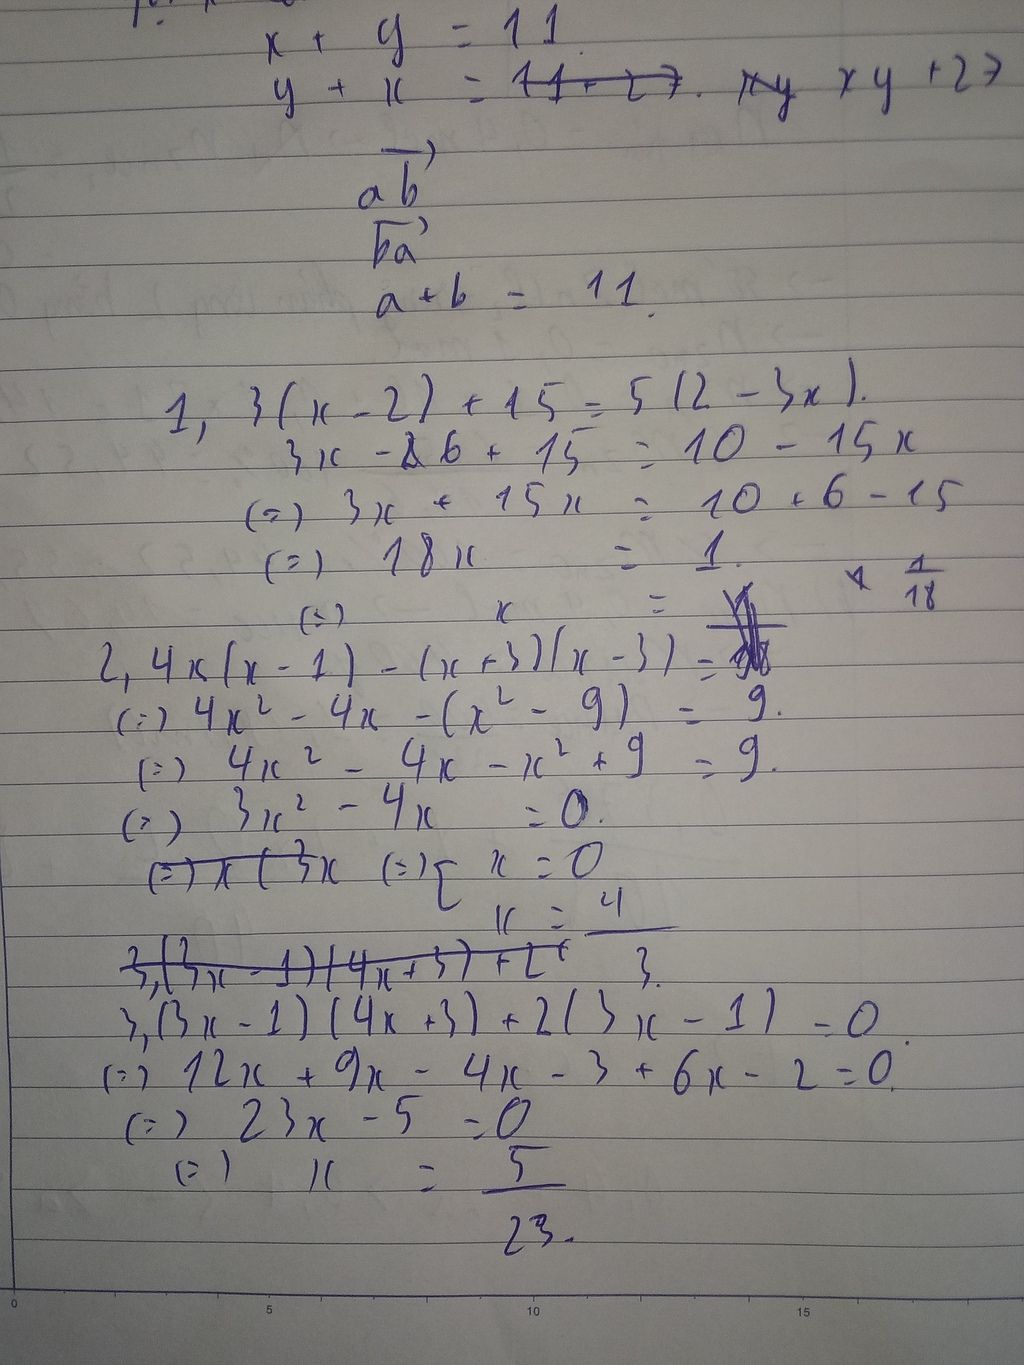 x + y = 11.
y + x = 11 + 27. xy xy + 27
ab
ba
a + b = 11.
1, 3(x - 2) + 15 = 5(2 - 3x).
3x - 6 + 15 = 10 - 15x
(=) 3x + 15x = 10 + 6 - 15
(=) 18x = 1.
(=) x = 1/18
2, 4x(x - 1) - (x + 3)(x - 3) =
(=) 4x² - 4x - (x² - 9) = 9.
(=) 4x² - 4x - x² + 9 = 9.
(=) 3x² - 4x = 0.
(=) x(3x (=) [ x = 0
x = 4/3.
3,(3x - 1)(4x + 3) + 2(
3,(3x - 1)(4x + 3) + 2(3x - 1) = 0.
(=) 12x + 9x - 4x - 3 + 6x - 2 = 0.
(=) 23x - 5 = 0
(=) x = 5/23.
0 5 10 15